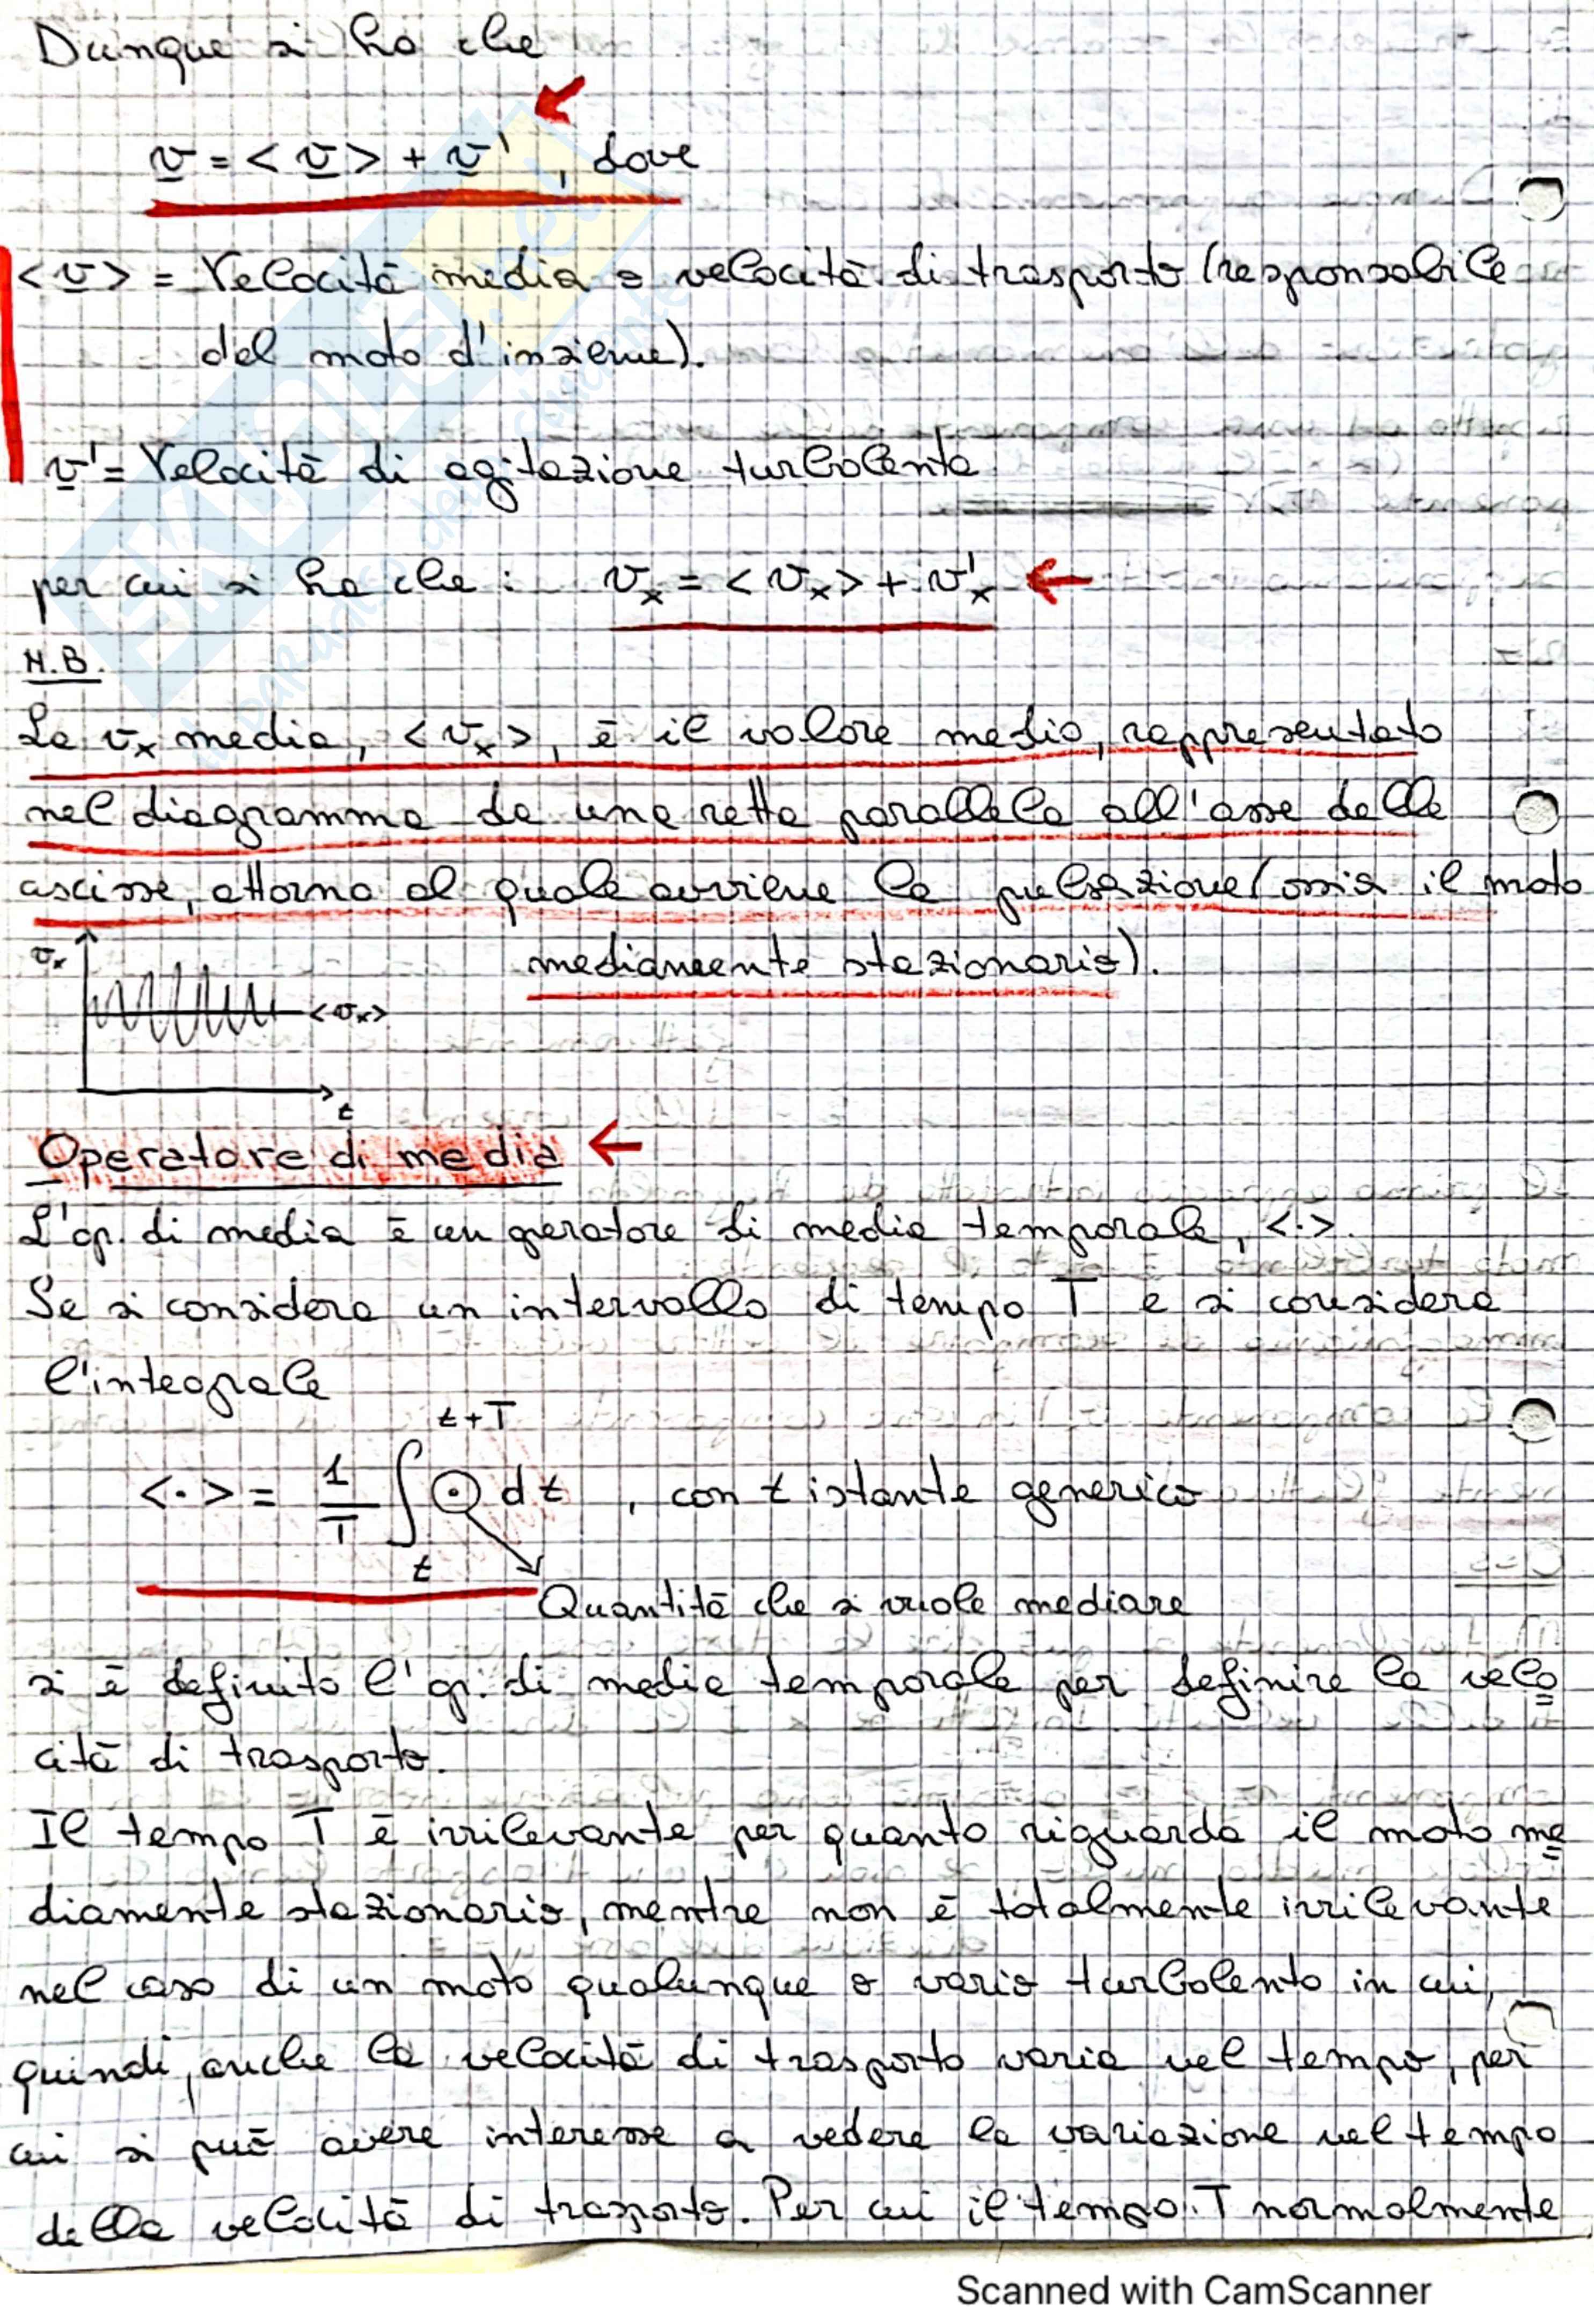 Dunque si ha che
v = <v> + v', dove
<v> = Velocità media o velocità di trasporto (responsabile
del moto d'insieme).
v' = Velocità di agitazione turbolenta
per cui si ha che : vx = <vx> + v'x
N.B.
La vx media, <vx>, è il valore medio, rappresentato
nel diagramma da una retta parallela all'asse delle
ascisse, attorno al quale avviene la pulsazione (ossia il moto
mediamente stazionario).
vx
<vx>
t
Operatore di media
L'op. di media è un operatore di media temporale, <·>.
Se si considera un intervallo di tempo T e si considera
l'integrale
t+T
<·> = 1/T ∫ ⊙ dt , con t istante generico
t
Quantità che si vuole mediare
si è definito l'op. di media temporale per definire la velo
cità di trasporto.
Il tempo T è irrilevante per quanto riguarda il moto me
diamente stazionario, mentre non è totalmente irrilevante
nel caso di un moto qualunque o vario turbolento in cui,
quindi, anche la velocità di trasporto varia nel tempo, per
cui si può avere interesse a vedere la variazione nel tempo
della velocità di trasporto. Per cui il tempo T normalmente
Scanned with CamScanner